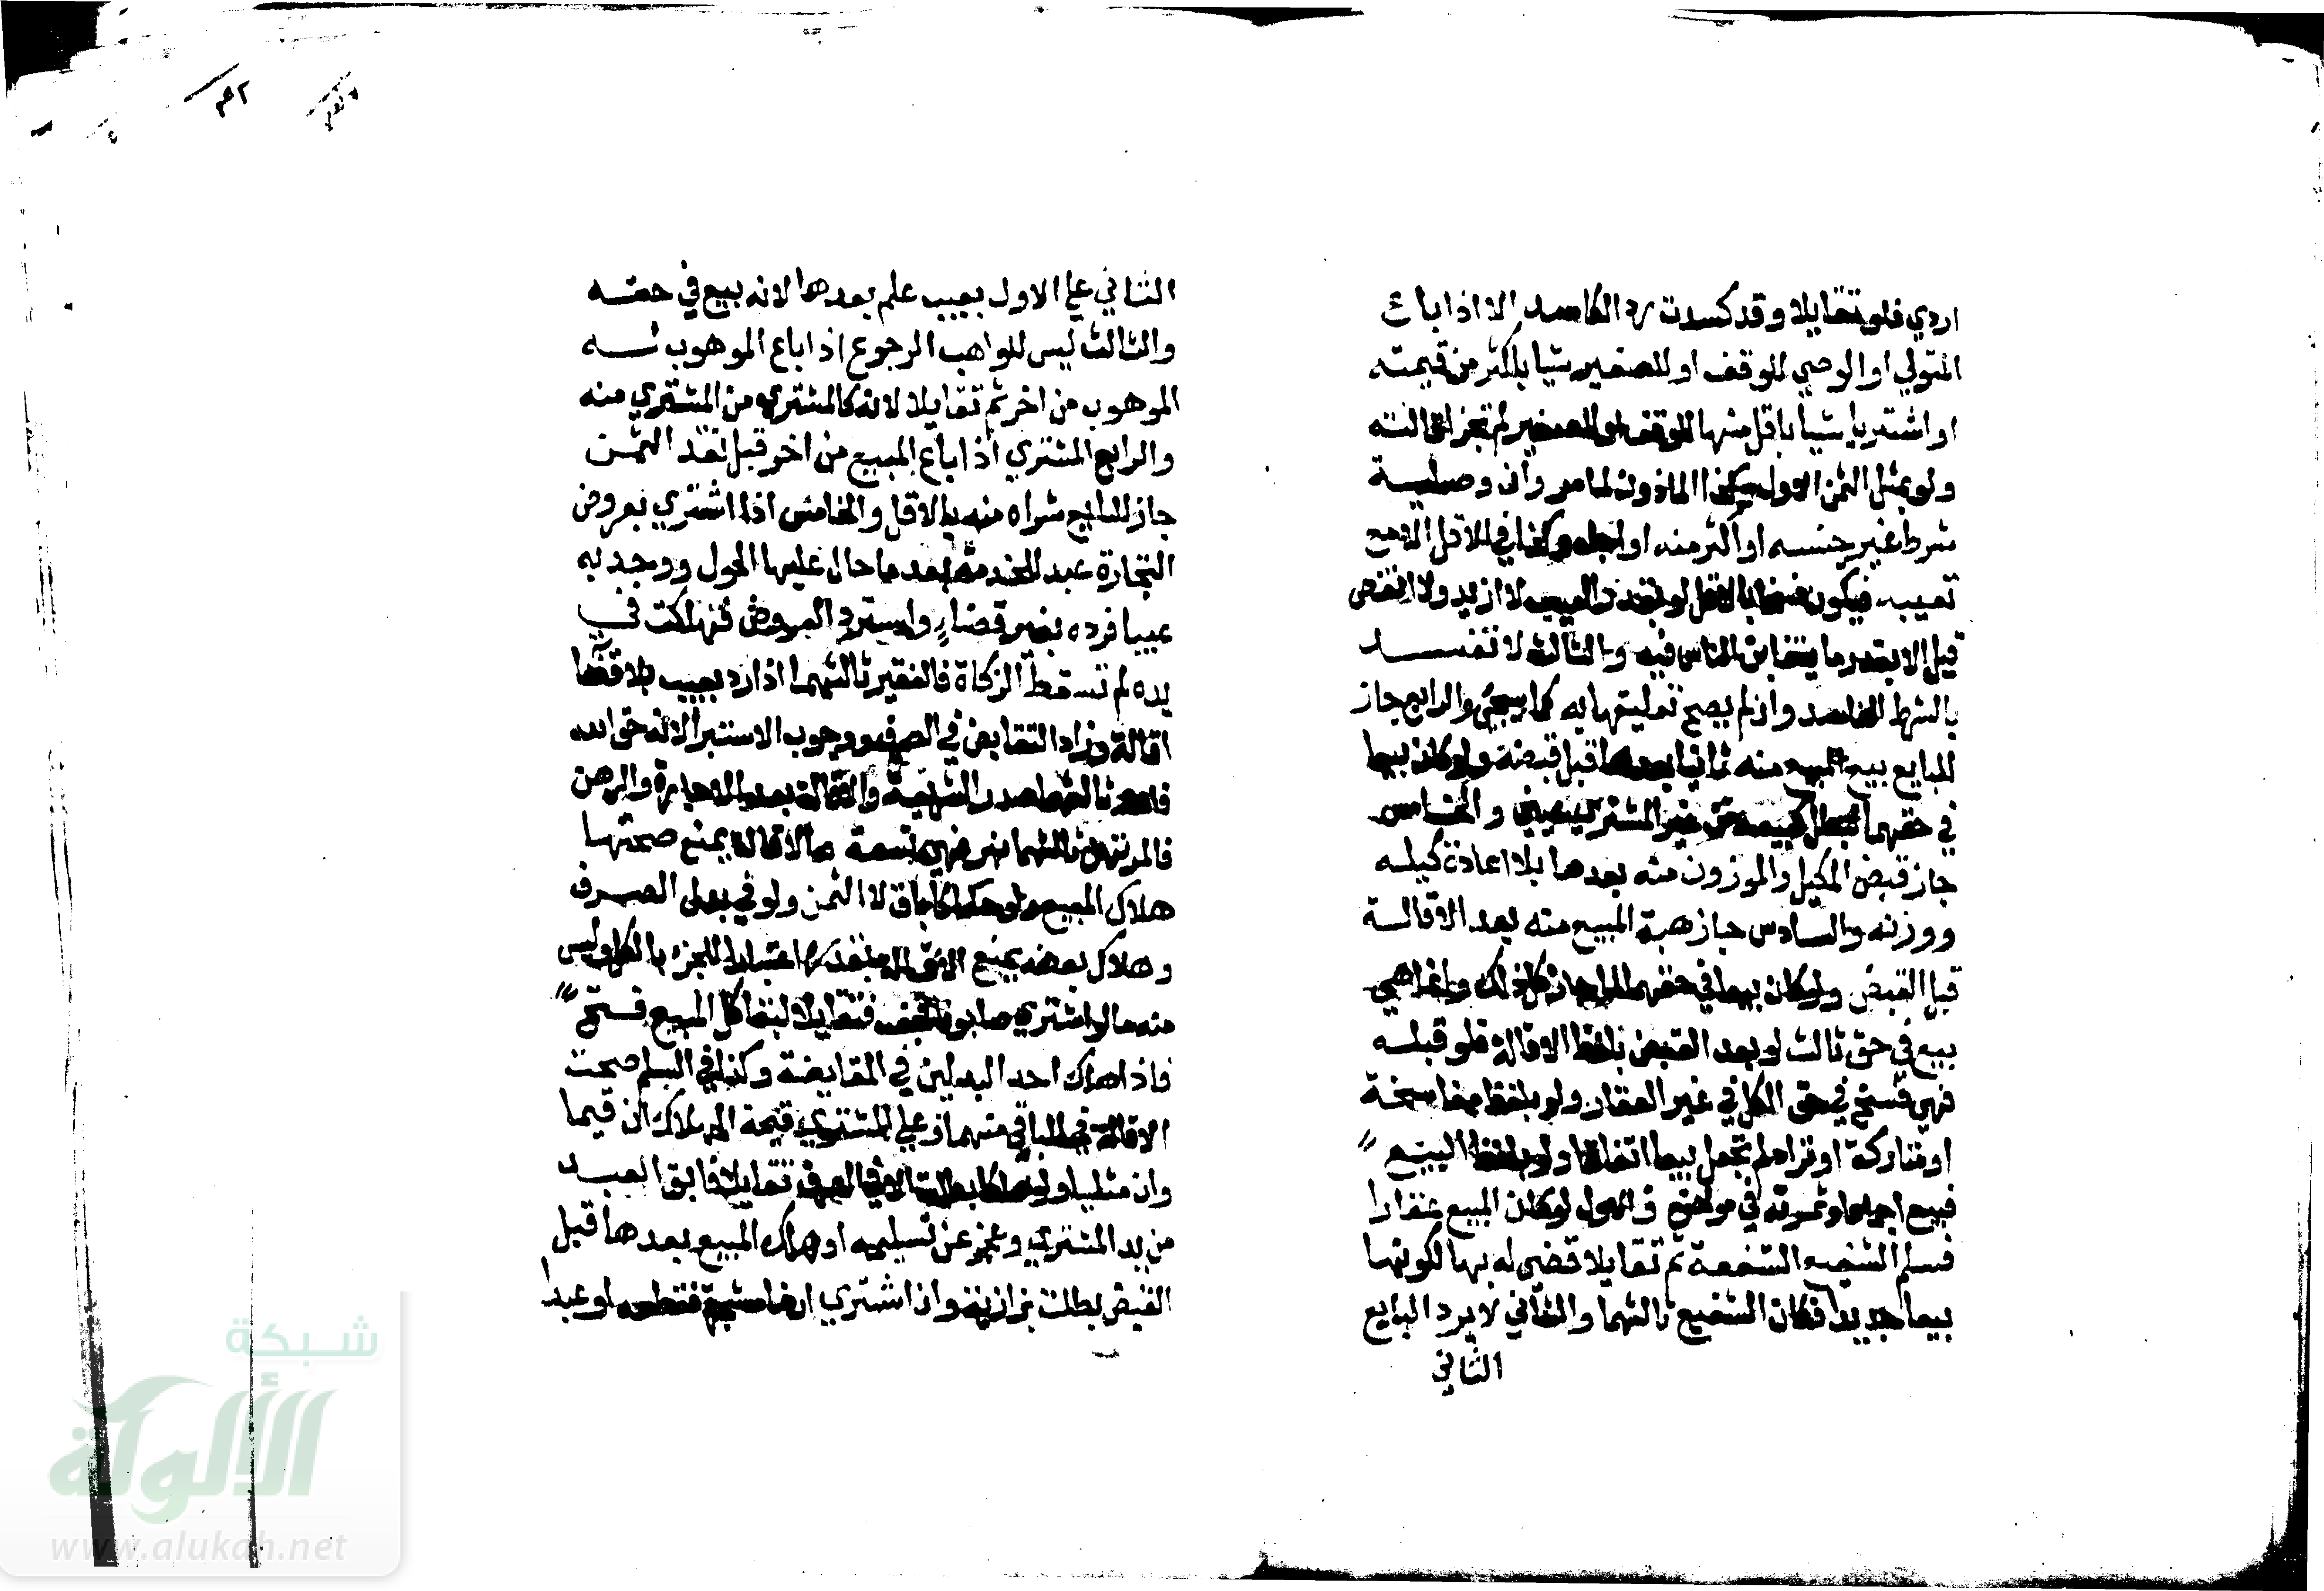 اردي فلو تقايلا وقد كسدت رد الكاسد الا اذا باع
المتولي او الوصي للوقف او للصغير شيا باكثر من قيمته
او اشتريا شيأ باقل منها للوقف او للصغير لم تجز اقالته
ولو بمثل الثمن الاول وكذا الماذون لما مر وان وصلية
شرط غير جنسه او اكثر منه او اجله وكذا في الاقل الا مع
تعيبه فيكون فسخا بالاقل لو بقدر العيب لا ازيد ولا انقص
قيل الا بقدر ما يتغابن الناس فيه والثالث لا تفسد
بالشرط الفاسد وان لم يصح تعليقها به كما سيجئ والرابع جاز
للبايع بيع المبيع منه ثانيا بعدها قبل قبضه ولو كان بيعا
في حقهما لبطل كبيعه من غير المشتري عيني والخامس
جاز قبض المكيل والموزون منه بعدها بلا اعادة كيله
ووزنه والسادس جاز هبة المبيع منه بعد الاقالة
قبل القبض ولو كان بيعا في حقهما لما جاز كل ذلك وانما هي
بيع في حق ثالث لو بعد القبض بلفظ الاقالة فلو قبله
فهي فسخ في حق الكل في غير العقار ولو بلفظ مفاسخة
او متاركة او تراد لم تجعل بيعا اتفاقا ولو بلفظ البيع
فبيع اجماعا وثمرته في مواضع فالاول لو كان المبيع عقارا
فسلم الشفيع الشفعة ثم تقايلا قضي له بها لكونها
بيعا جديدا فكان الشفيع ثالثهما والثاني لا يرد البايع
الثاني
الثاني علي الاول بعيب علم بعدها لانه بيع في حقه
والثالث ليس للواهب الرجوع اذا باع الموهوب له
الموهوب من اخر ثم تقايلا لانه كالمشتري من المشتري منه
والرابع المشتري اذا باع المبيع من اخر قبل نقد الثمن
جاز للبايع شراه منه بالاقل والخامس اذا اشتري بعروض
التجارة عبد للخدمة بعد ما حال عليها الحول ووجد به
عيبا فرده بغير قضاء واسترد العروض فهلكت في
يده لم تسقط الزكاة فالفقير ثالثهما اذ الرد بعيب بلا قضا
اقالة وزاد التقابض في الصرف ووجوب الاستبرا لانه حق الله
فالله ثالثهما صدر الشريعة والاقالة بعد الاجارة والرهن
فالمرتهن ثالثهما نهر فهي تسعة والاقالة يمنع صحتها
هلاك المبيع ولو حكما كاباق لا الثمن ولو في بدل الصرف
وهلاك بعضه يمنع الاقالة بقدره اعتبارا للجزء بالكل وليس
منه ما لو اشتري صابونا فجف فتقايلا لبقا كل المبيع فتح
فاذا هلك احد البدلين في المقايضة وكذا في السلم صحت
الاقالة في الباقي منهما وعلي المشتري قيمة الهالك ان قيما
وان مثليا ولو هلكا بطلت الا في الصرف تقايلا فابق العبد
من يد المشتري وعجز عن تسليمه او هلك المبيع بعدها قبل
القبض بطلت بزازية وان اشتري ارضا مشجرة فقطعه او عبدا
شبكة
الألوكة
www.alukah.net